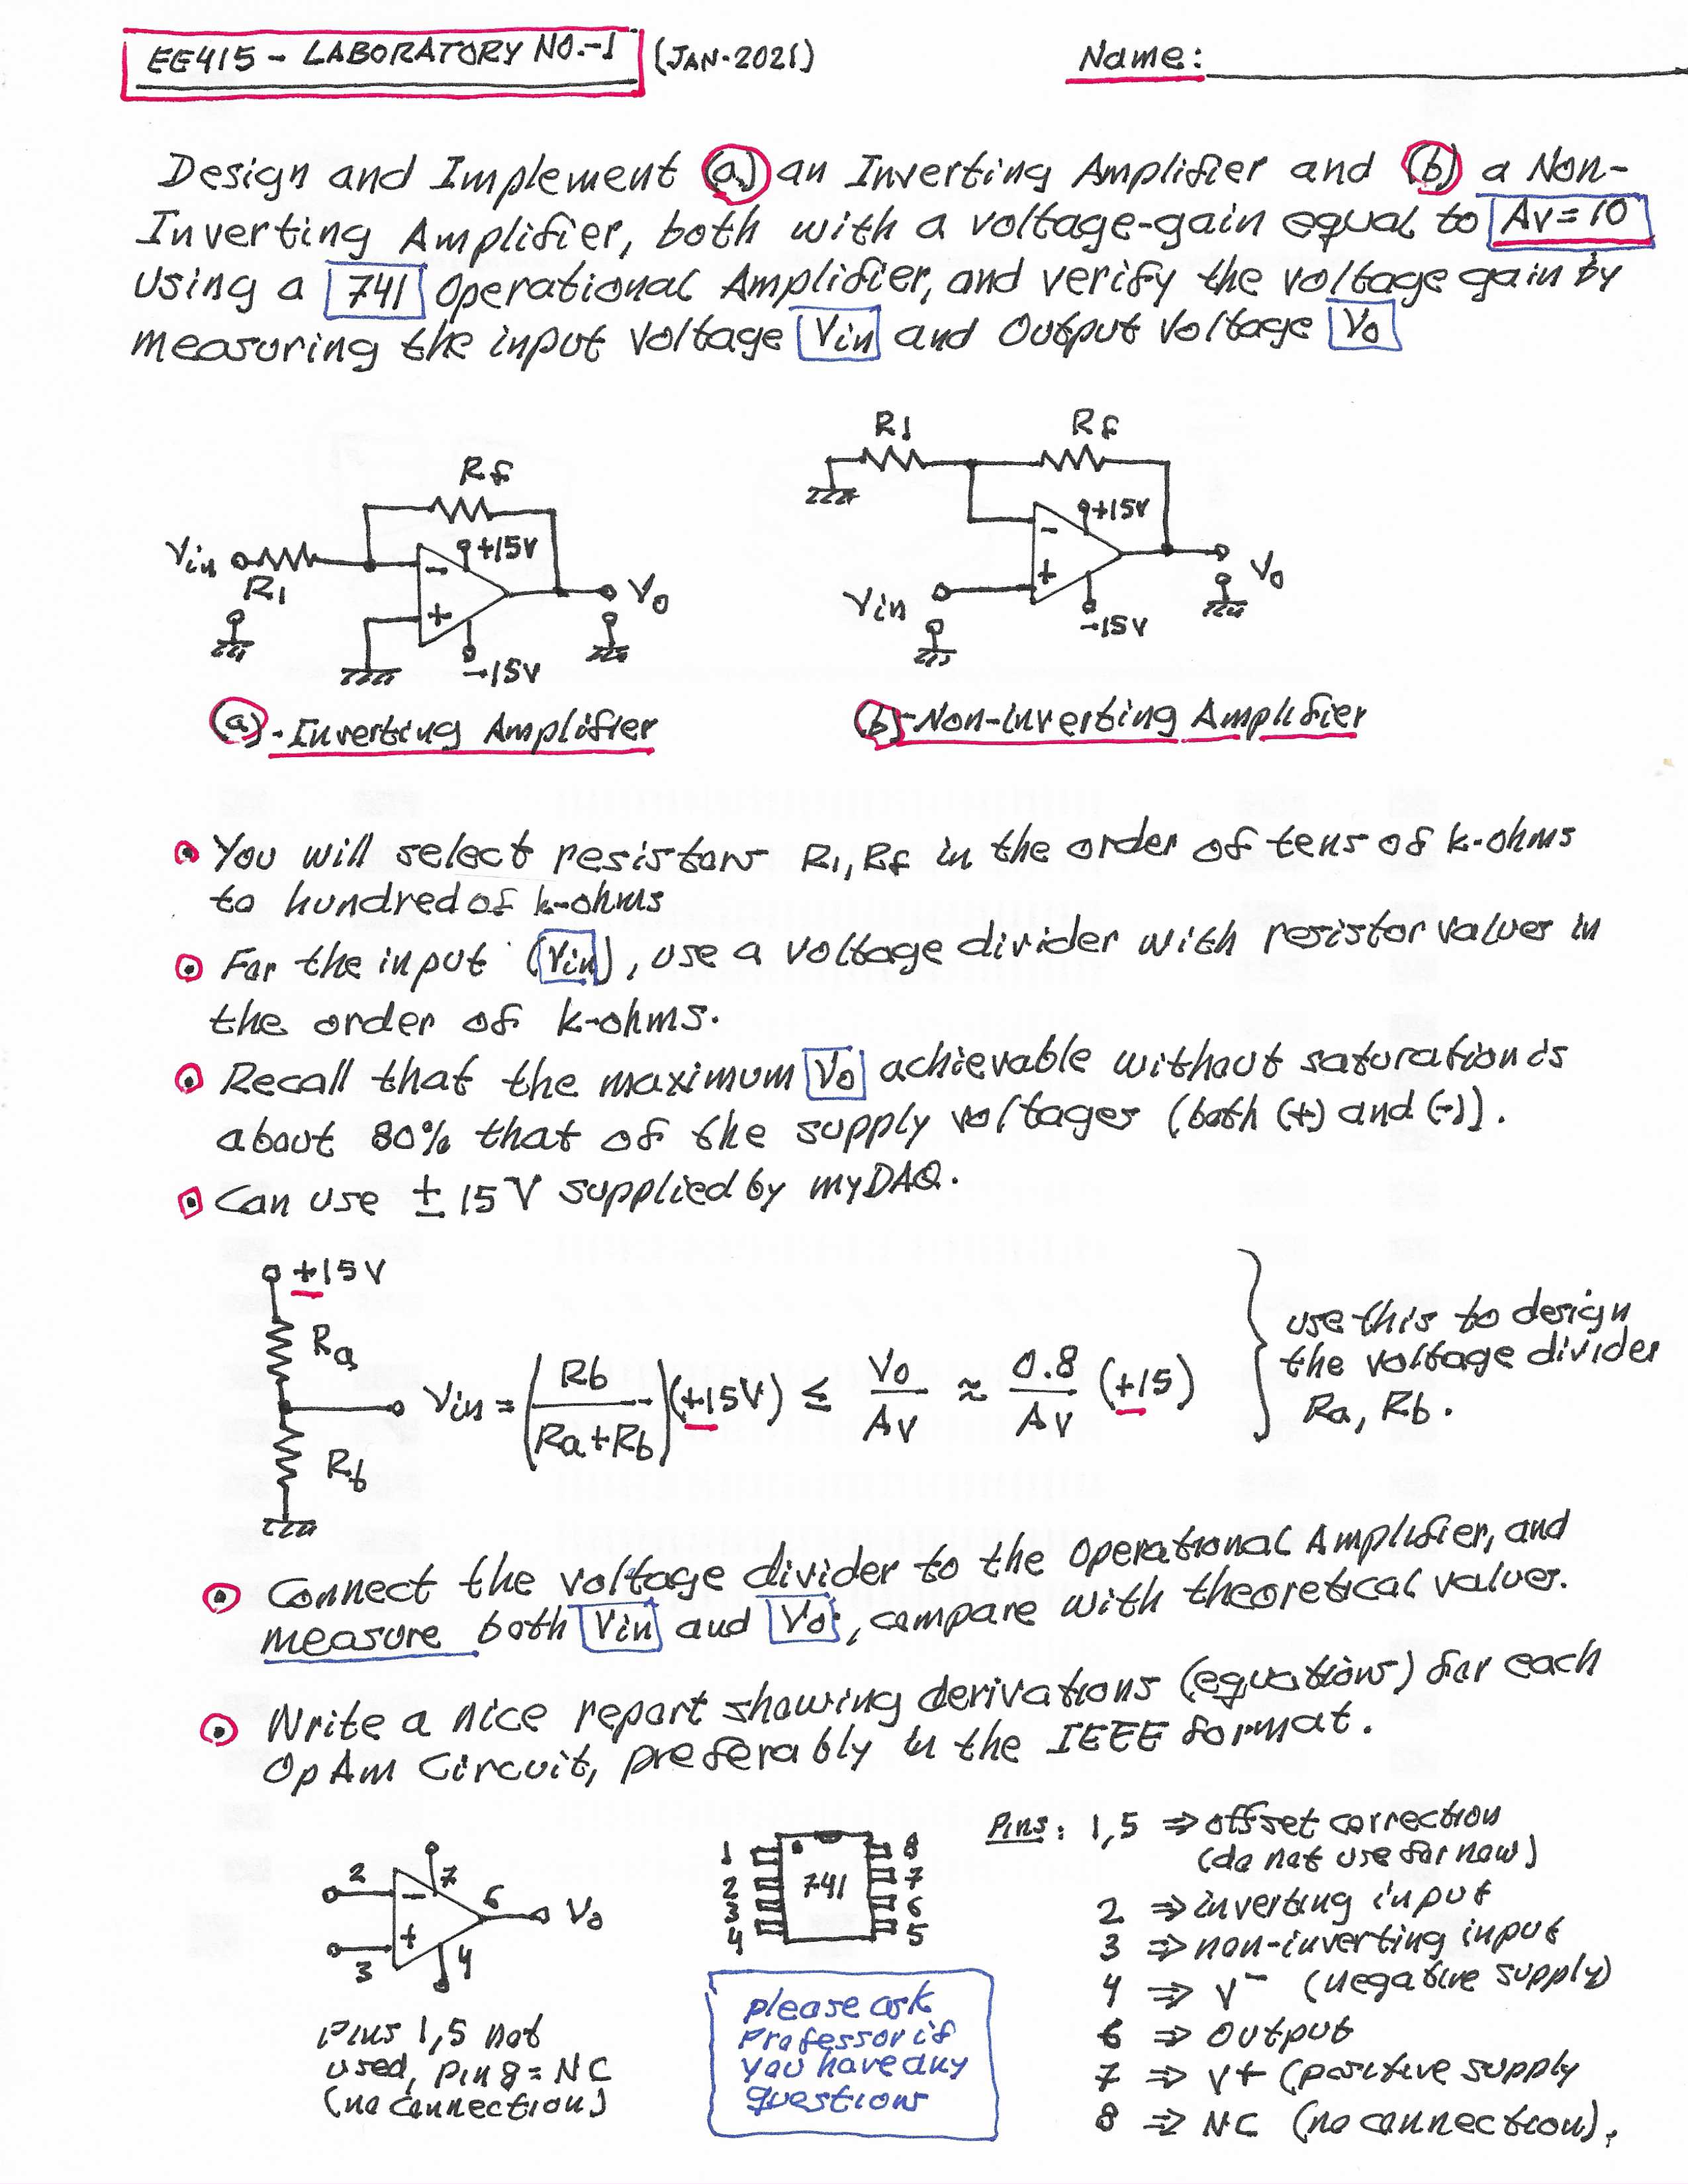 EE415 - LABORATORY NO.-1 (JAN-2021) Name:
Design and Implement (a) an Inverting Amplifier and (b) a Non-
Inverting Amplifier, both with a voltage-gain equal to Av=10
using a 741 Operational Amplifier, and verify the voltage gain by
measuring the input voltage Vin and Output Voltage Vo
Rf
Vin
R1
+15V
-
+
-15V
Vo
(a)-Inverting Amplifier
R1
Rf
+15V
-
+
Vin
-15V
Vo
(b)-Non-inverting Amplifier
You will select resistors R1, Rf in the order of tens of k-ohms
to hundred of k-ohms
For the input (Vin), use a voltage divider with resistor values in
the order of k-ohms.
Recall that the maximum Vo achievable without saturation is
about 80% that of the supply voltages (both (+) and (-)).
Can use ± 15V supplied by myDAQ.
±15V
Ra
Rb
Vin = (Rb/(Ra+Rb))(±15V) ≤ Vo/Av ≈ 0.8/Av (±15)
use this to design
the voltage divider
Ra, Rb.
Connect the voltage divider to the Operational Amplifier, and
measure both Vin and Vo, compare with theoretical values.
Write a nice report showing derivations (equations) for each
OpAm Circuit, preferably in the IEEE format.
2
-
7
6
Vo
+
3
4
Pins 1,5 not
used, pin 8 = NC
(no connection)
1
2
3
4
741
8
7
6
5
please ask
Professor if
you have any
questions
Pins: 1,5 ⇒ offset correction
(do not use for now)
2 ⇒ inverting input
3 ⇒ non-inverting input
4 ⇒ V- (negative supply)
6 ⇒ Output
7 ⇒ V+ (positive supply
8 ⇒ NC (no connection).